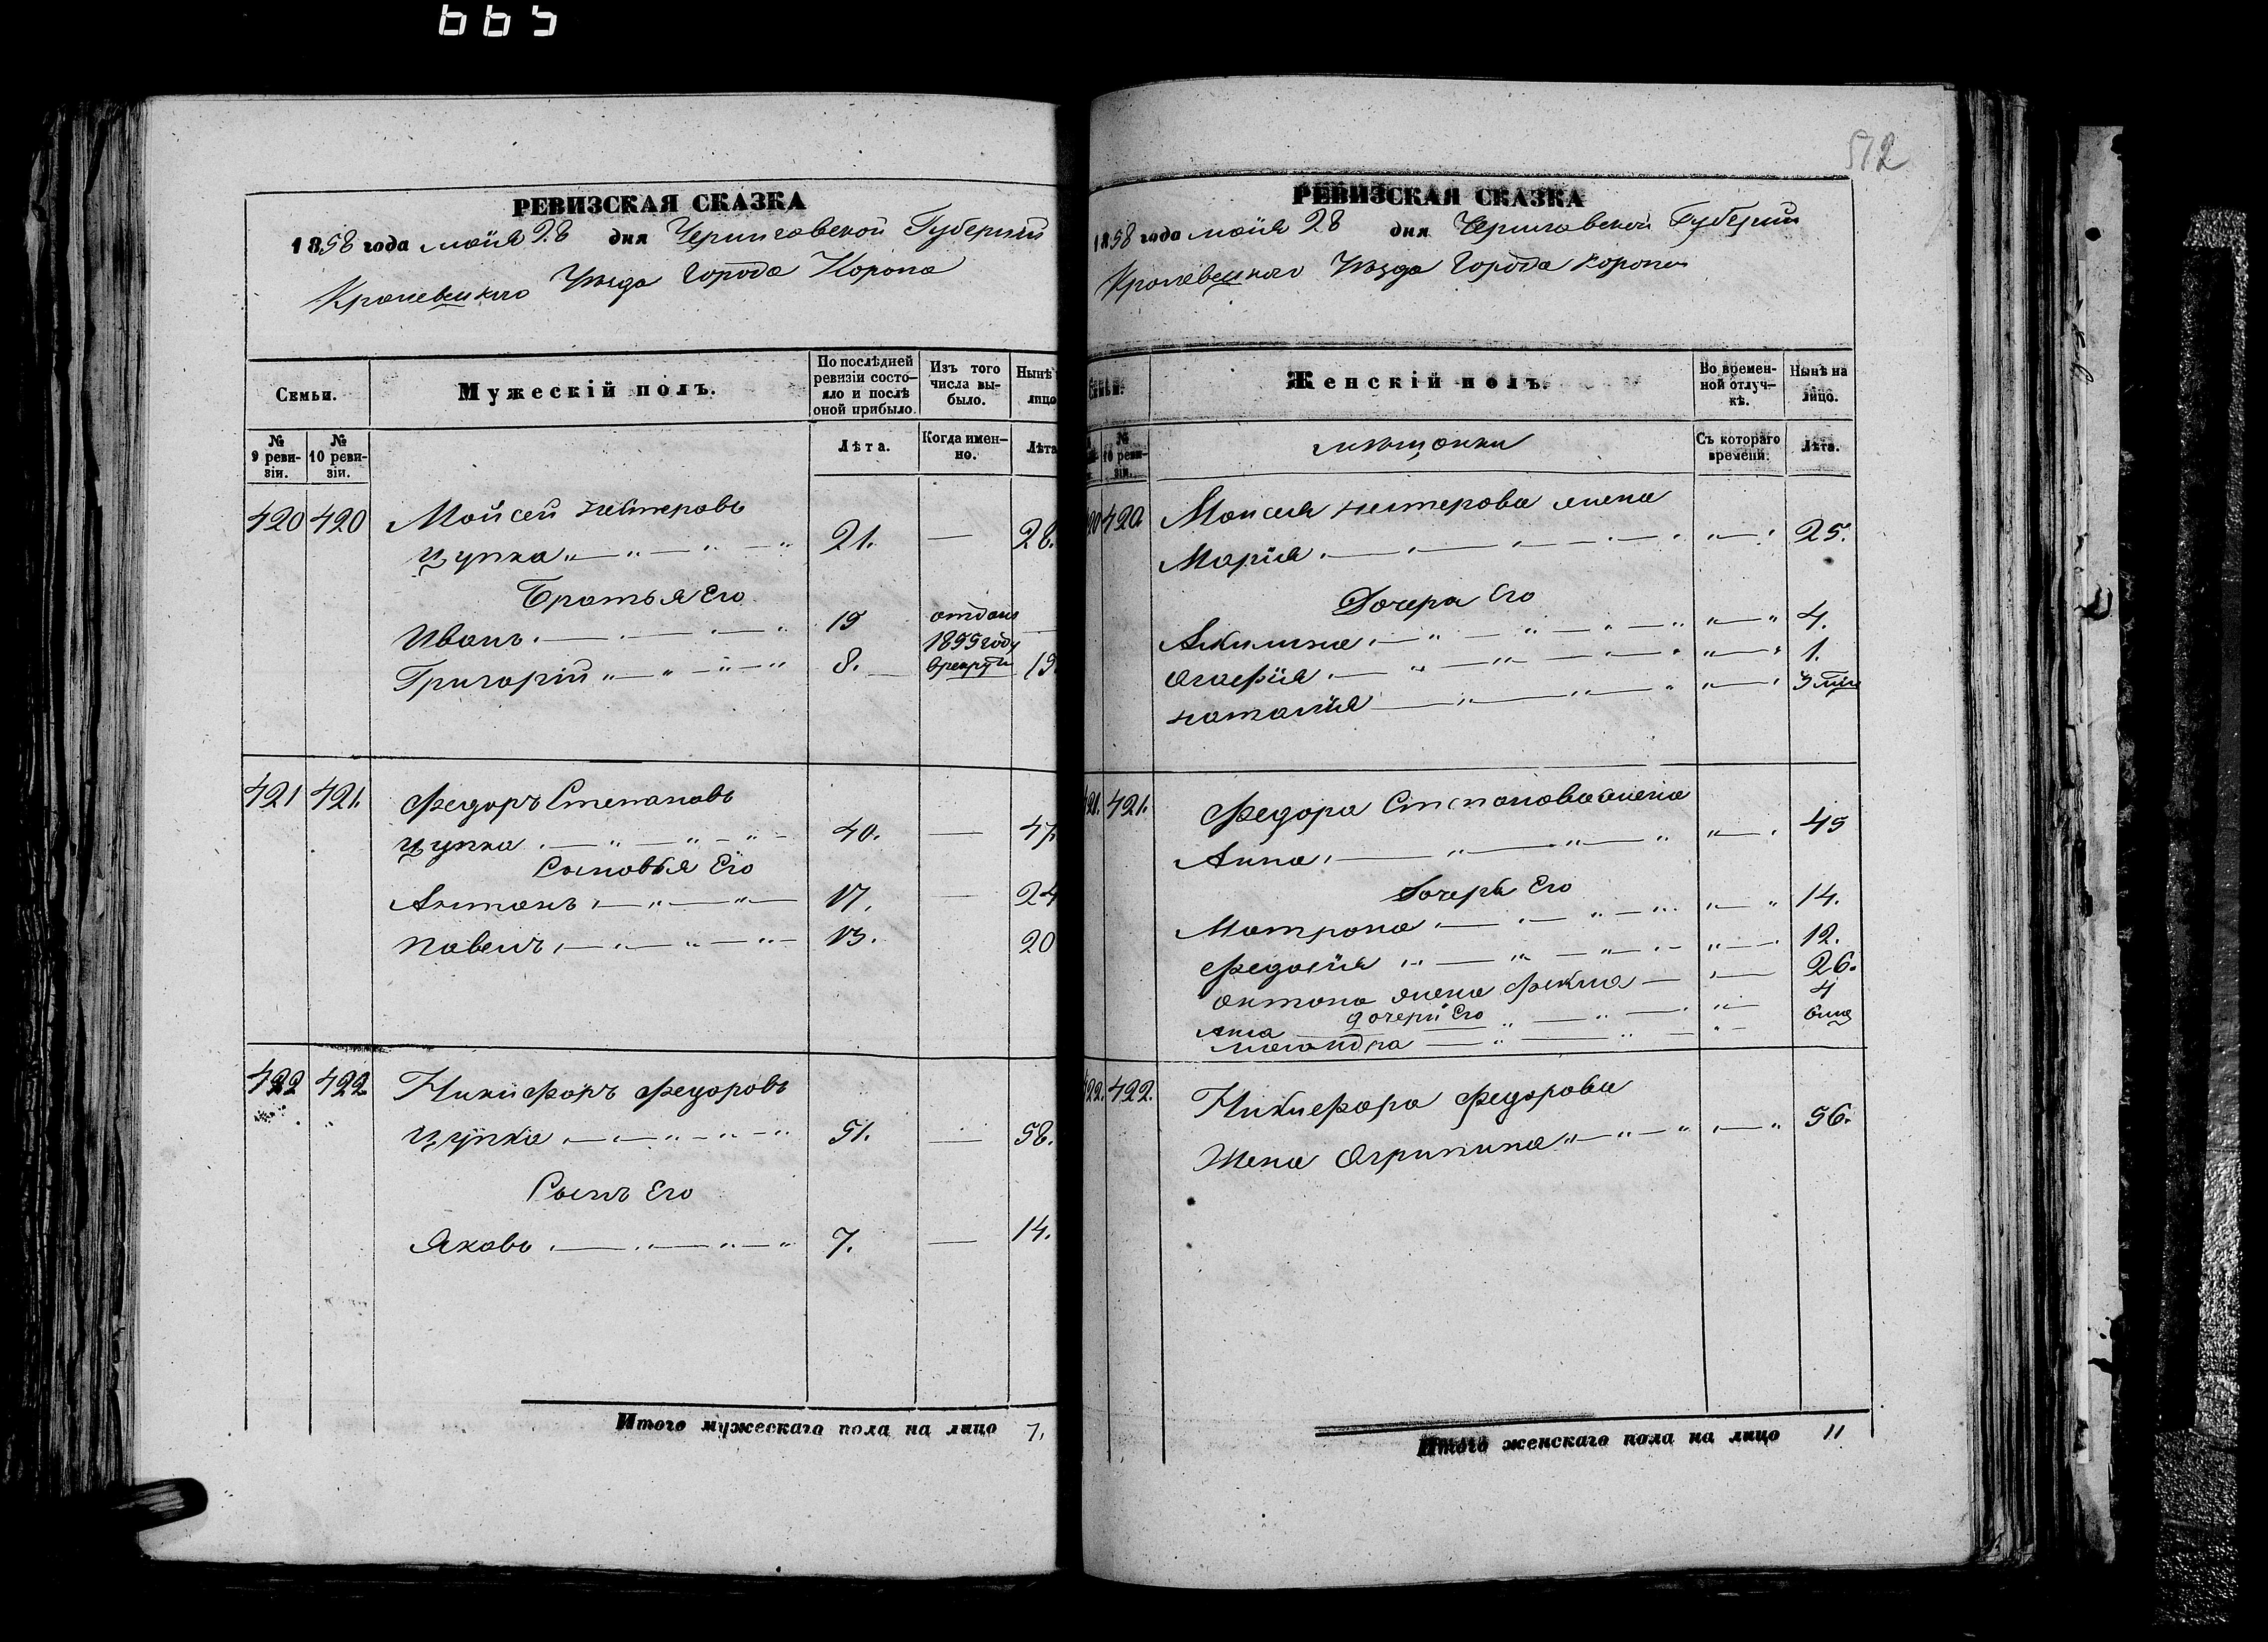 665
512
РЕВИЗСКАЯ СКАЗКА
1858 года маія 28 дня Черниговской Губерніи
Кролевецкаго Уѣзда Города Коропа
Семьи.
Мужескій полъ.
По послѣдней ревизіи состо-
яло и послѣ оной прибыло.
Изъ того числа вы-
было.
Нынѣ
лицо
№ 9 реви-
зіи.
№ 10 реви-
зіи.
Лѣта.
Когда имен-
но.
Лѣта
420 420 Мойсей Нестеровъ
Цупка 21. — 28.
Братья Его
Иванъ 19 отданъ
1855 году
Григорій 8. врекруты 15
421 421. Федоръ Степановъ
Цупка 40. — 47
Сыновья Его
Антонъ 17. — 24
Павелъ 13. 20
422 422. Никифоръ Федоровъ
Цупка 51. — 58.
Сынъ Его
Яковъ 7. — 14.
Итого мужескаго пола на лицо 7.
РЕВИЗСКАЯ СКАЗКА
1858 года маія 28 дня Черниговской Губерніи
Кролевецкаго Уѣзда Города Коропа
Семьи.
Женскій полъ.
Во времен-
ной отлуч-
кѣ.
Нынѣ на
лицо.
№ 10 реви-
зіи.
мѣщанки
Съ котораго
времени.
Лѣта.
420. Моисея Нестерова жена
Марія 25.
Дочери Его
Акилина 4.
Агафія 1.
Наталія 3
421. Федора Степанова жена
Анна 45
Дочери Его
Матрона 14.
Федосія 12.
Антона жена Фекла 26.
дочери Его 4
Анна
422. Никифора Федорова
Жена Агрипина 56.
Итого женскаго пола на лицо 11